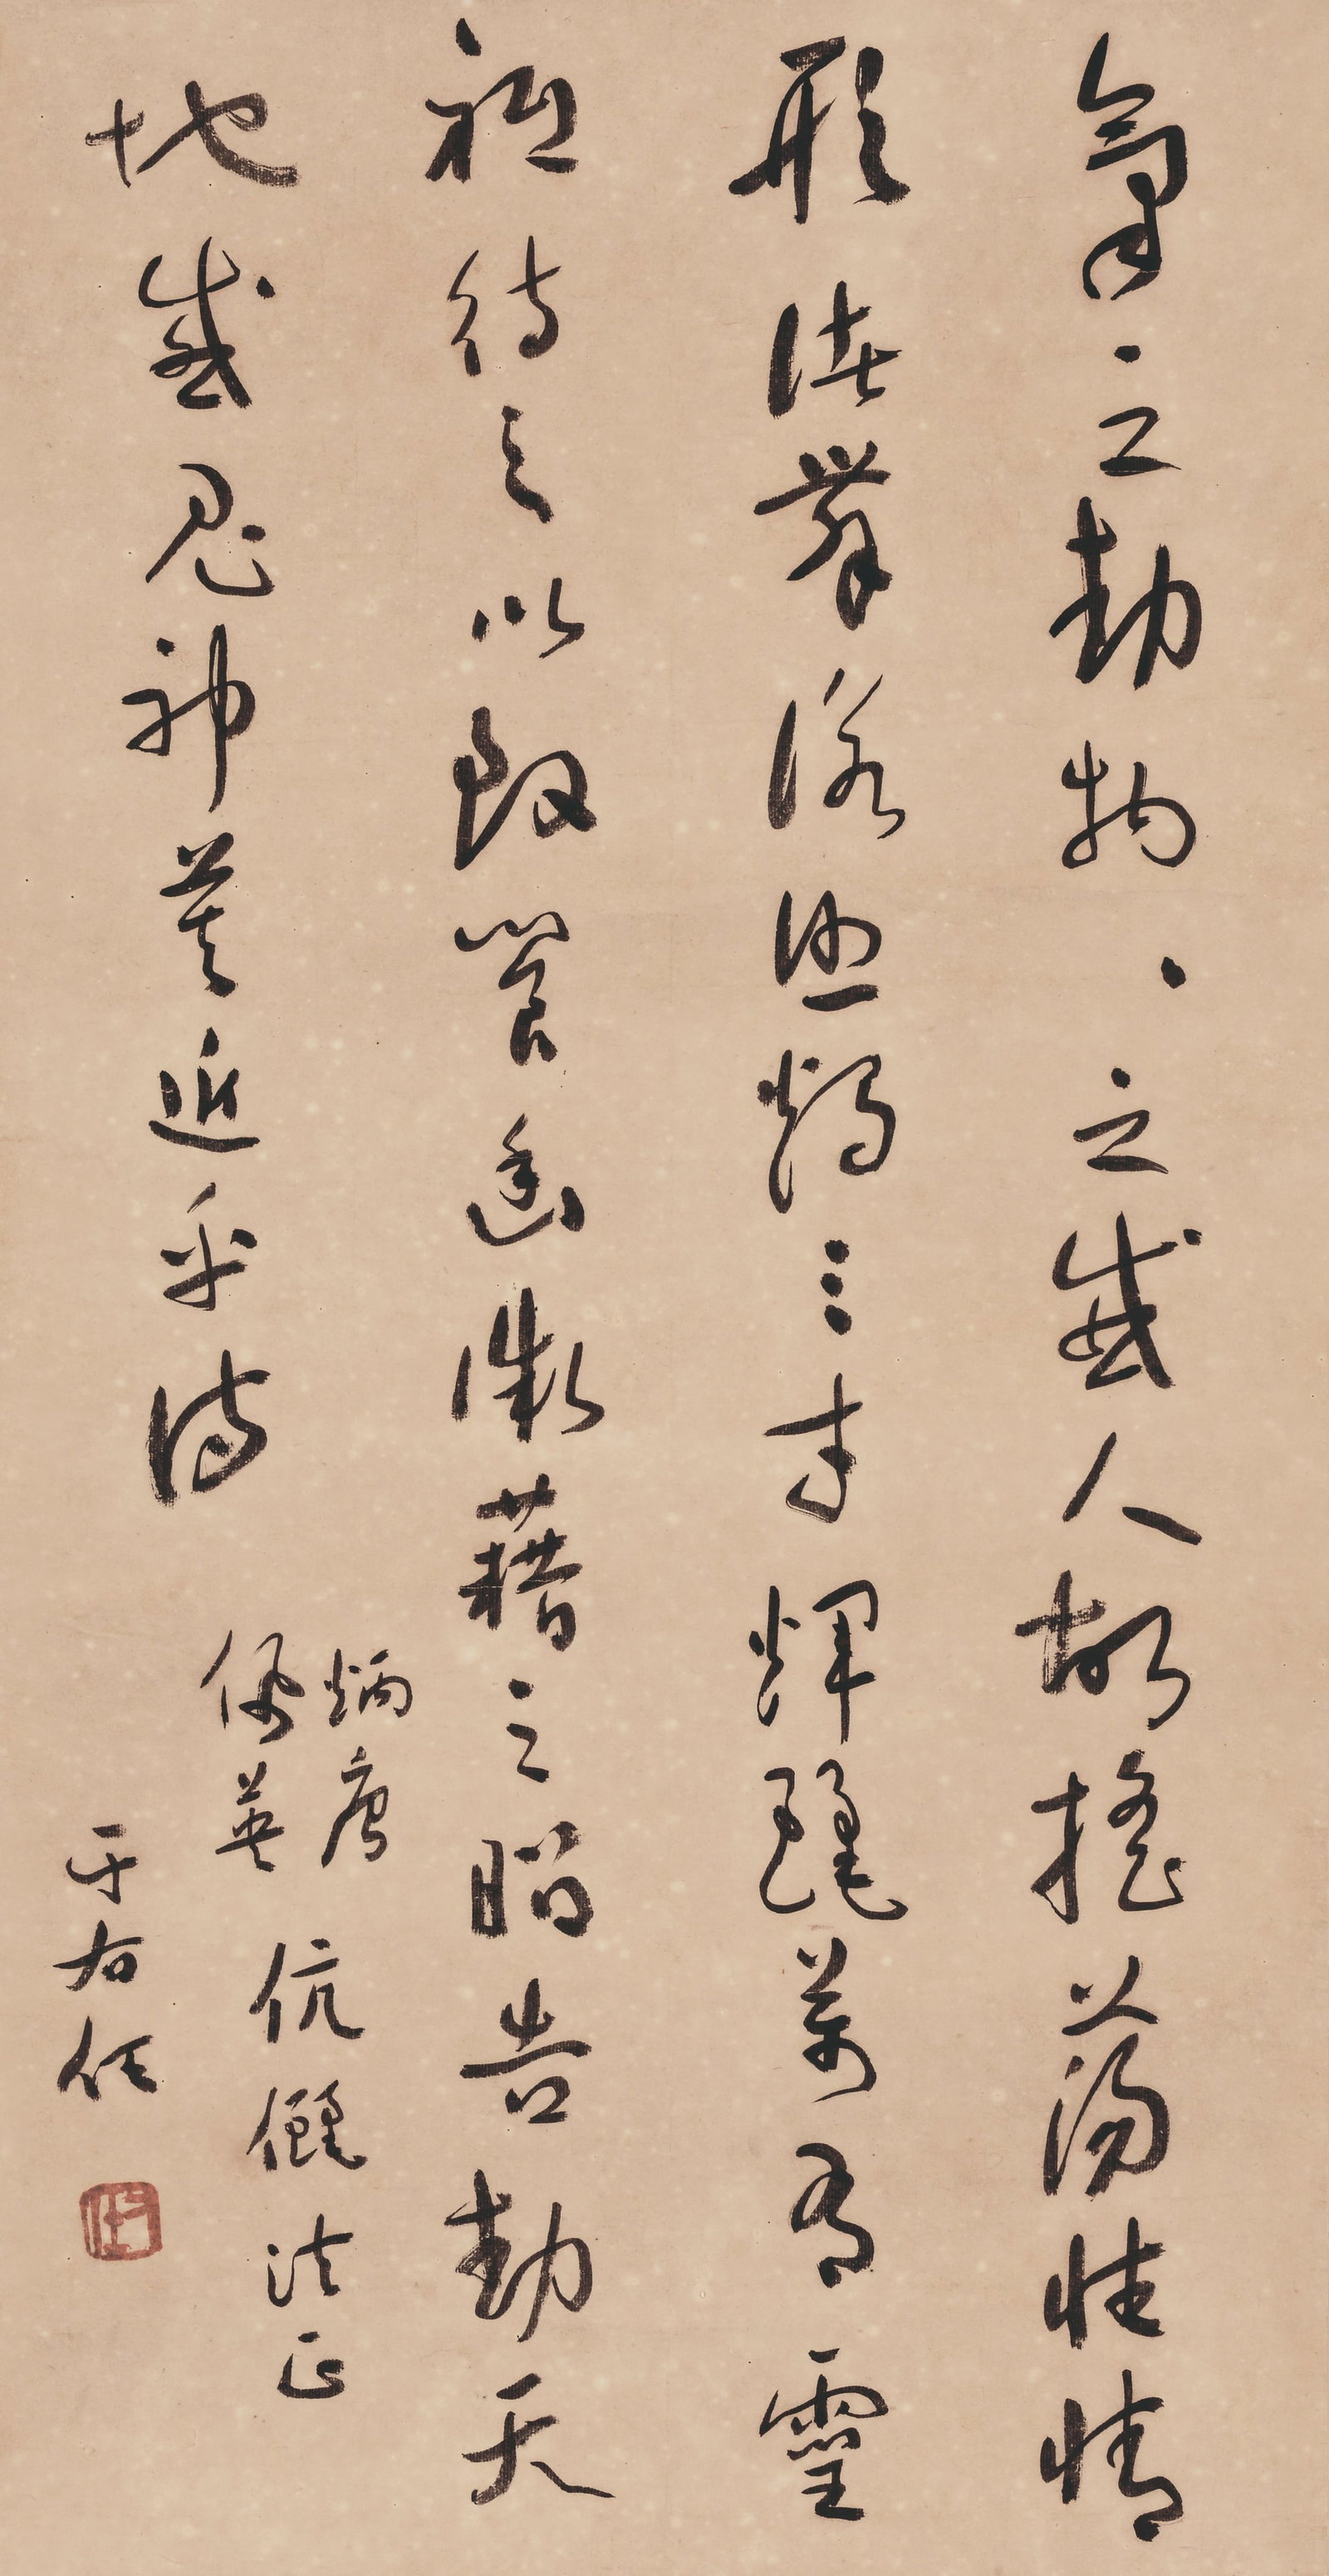 氣之動物、之感人故搖蕩性情
形諸舞詠照燭三才輝麗萬有靈
祇待之以致饗幽微藉之昭告動天
地感鬼神莫近乎詩
炳唐
佩英
伉儷法正
于右任